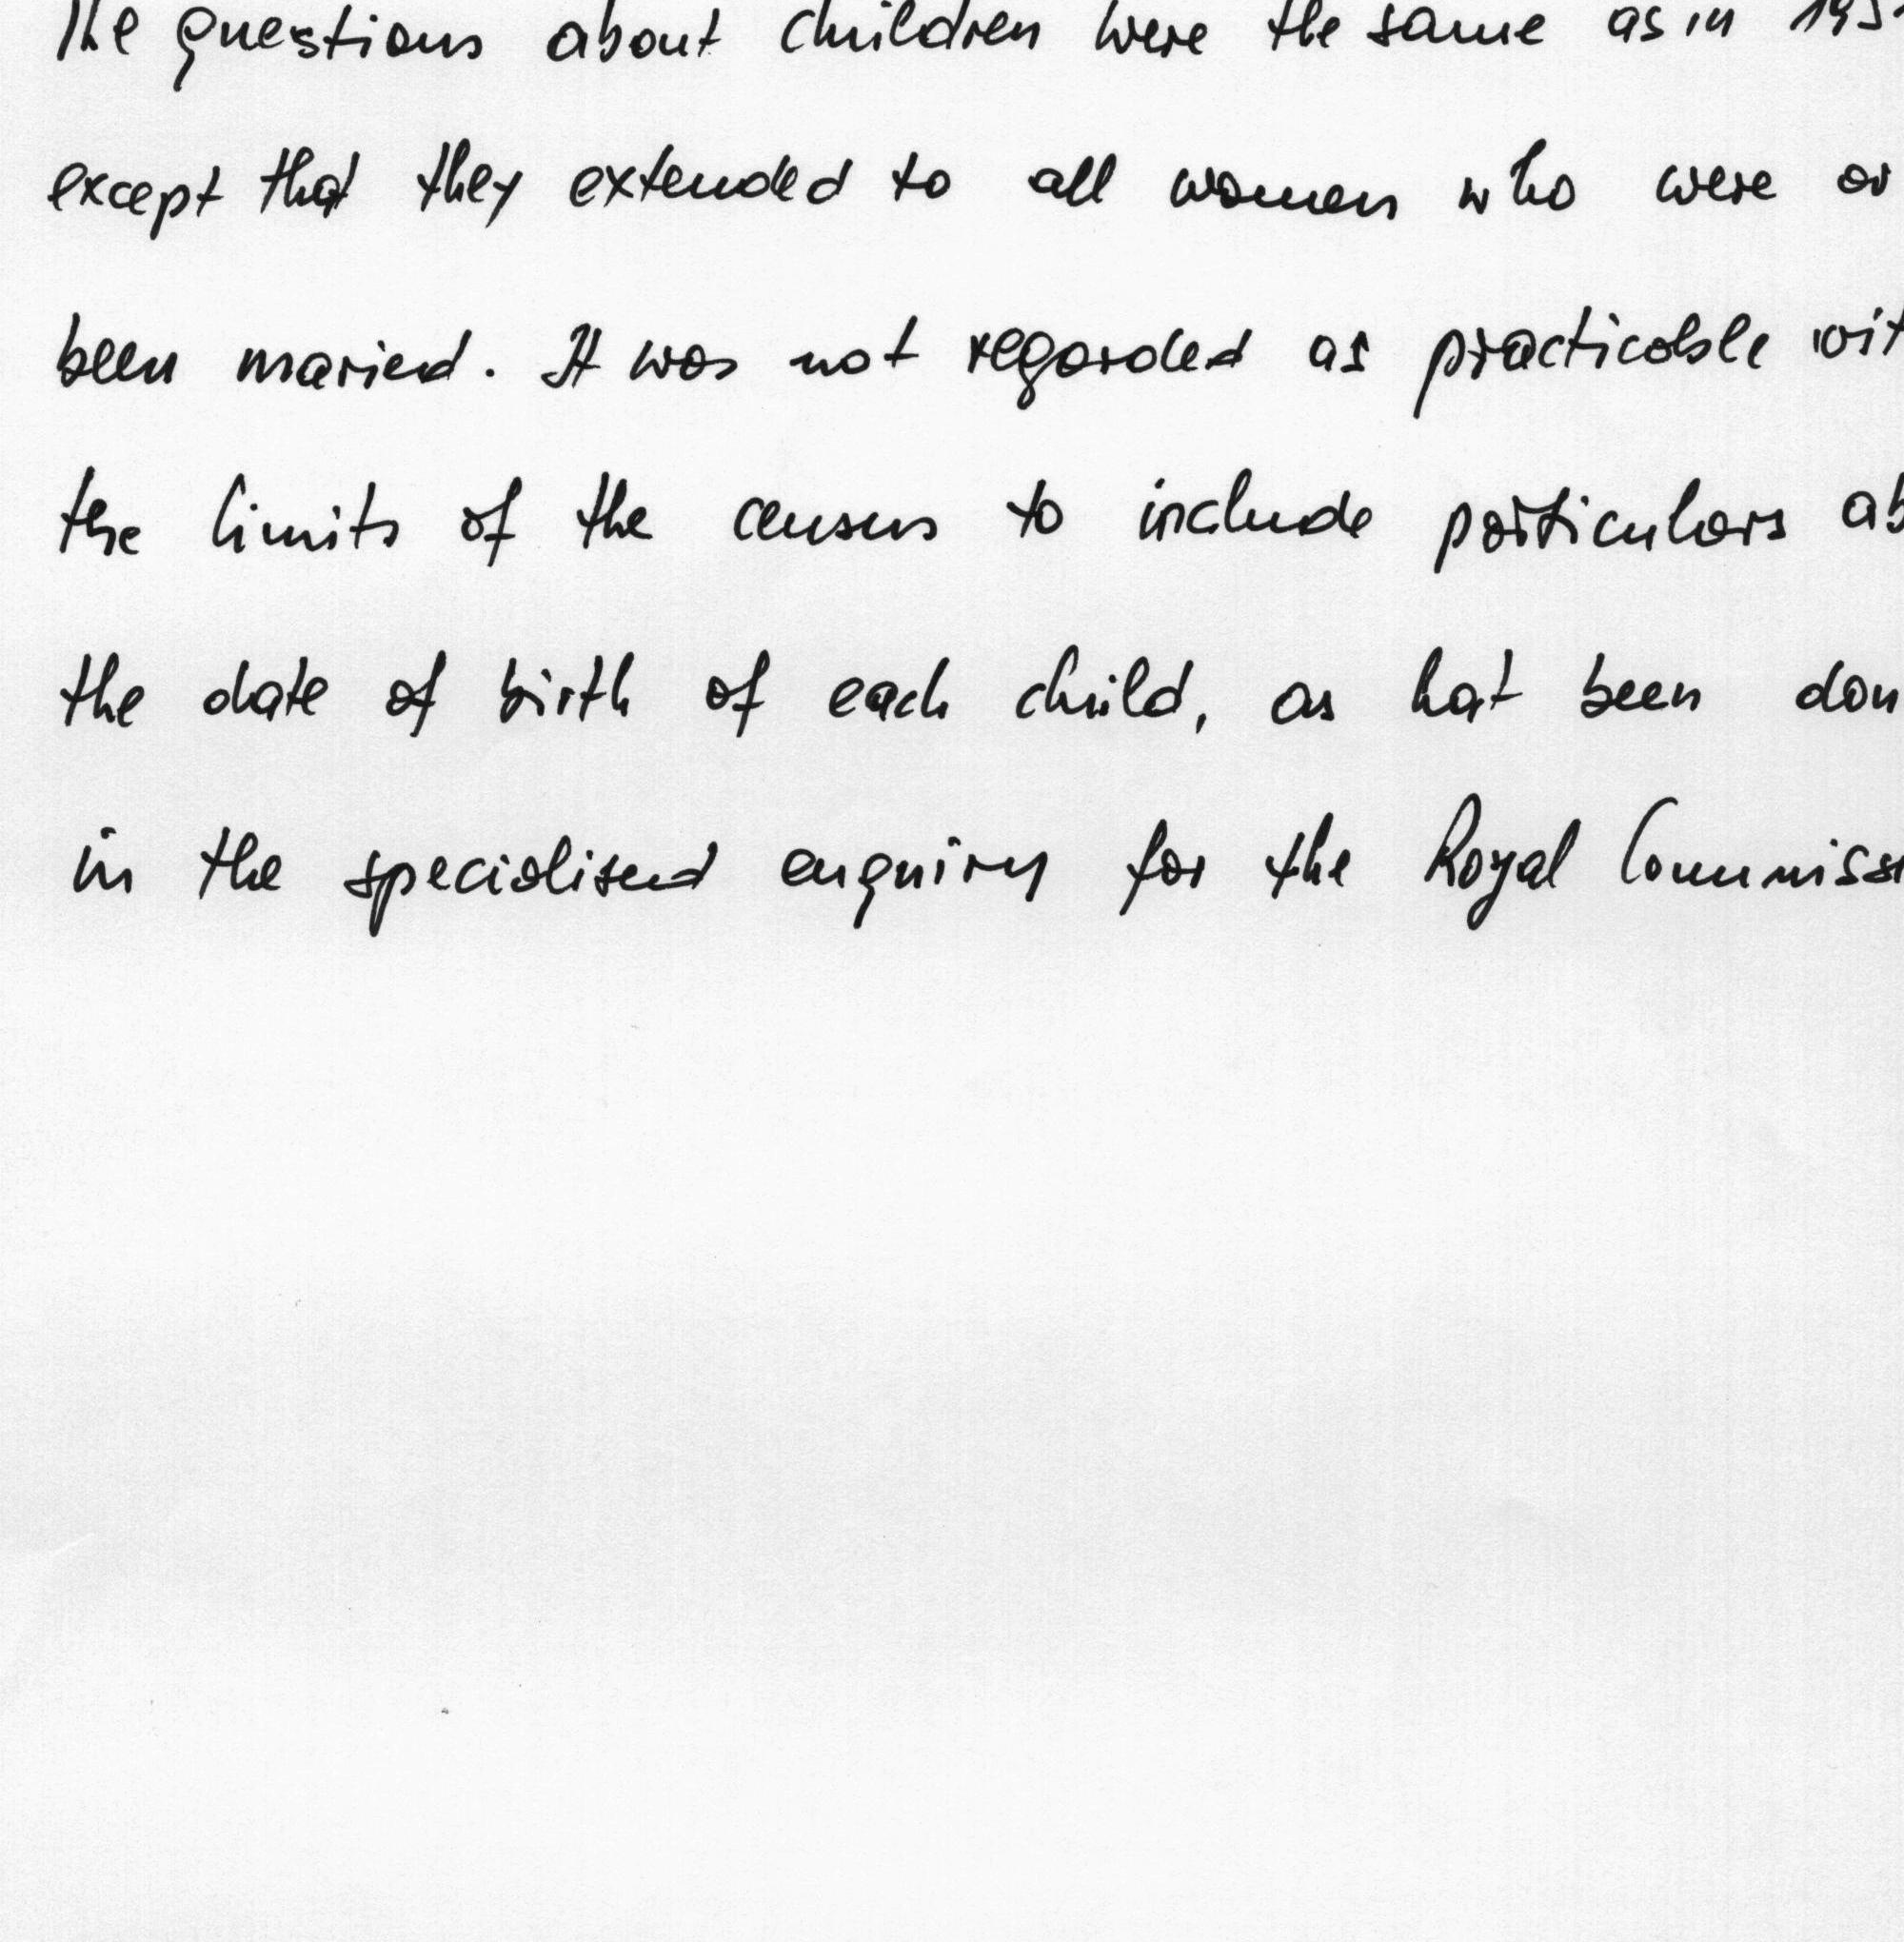 The questions about children were the same as in
except that they extended to all women who were or
been maried. It was not regarded as practicable
the limits of the census to include particulars
the date of birth of each child, as hat been
in the specialised enquiry for the Royal